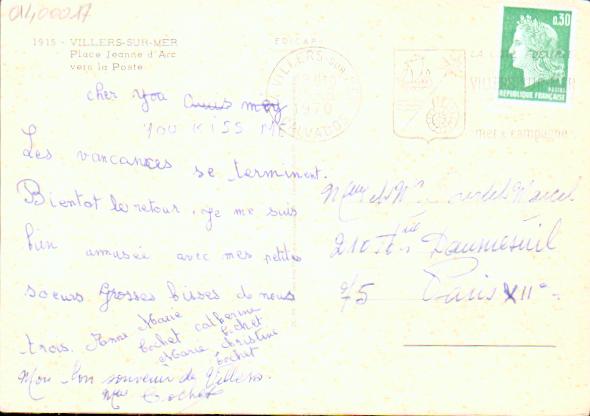 01400017
1915 - VILLERS-SUR-MER
Place Jeanne d'Arc
vers la Poste
EDICAP
VILLERS-SUR-MER
1970
CALVADOS
VILLERS-SUR-MER
mer & campagne
0,30
POSTES
REPUBLIQUE FRANÇAISE
cher you
YOU KISS ME
Les vancances se terminent.
Bientot le retour. Je me suis
bien amusée avec mes petites
soeurs Grosses bises de nous
trois. Anne Marie Cochet Catherine Cochet
Marie Christine Cochet
Mon bon souvenir de Villers.
Mme Cochet
Marcel
210 Daumesnil
75 Paris XIIe